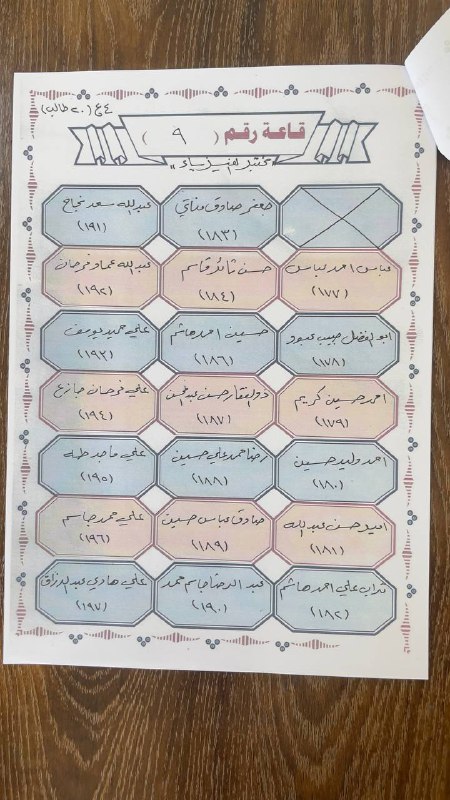 ٤ع (٢٠ طالب)
قاعة رقم ( ٩ )
"مختبر الفيزياء"
جعفر صادق مناتي
(١٨٣)
عبدالله سعد نجاح
(١٩١)
عباس احمد عباس
(١٧٧)
حسن ثائر قاسم
(١٨٤)
عبدالله عماد فرحان
(١٩٢)
ابو الفضل حبيب عبود
(١٧٨)
حسين احمد هاشم
(١٨٦)
علي حميد يوسف
(١٩٣)
احمد حسين كريم
(١٧٩)
ذو الفقار حسن عبد الحسن
(١٨٧)
علي فرحان
(١٩٤)
احمد وليد حسين
(١٨٠)
رضا حمد علي حسين
(١٨٨)
علي ماجد طه
(١٩٥)
امير حسن عبدالله
(١٨١)
صادق عباس حسين
(١٨٩)
علي حمد جاسم
(١٩٦)
تراب علي احمد هاشم
(١٨٢)
عبد الرضا جاسم حمد
(١٩٠)
علي هادي عبد الرزاق
(١٩٧)